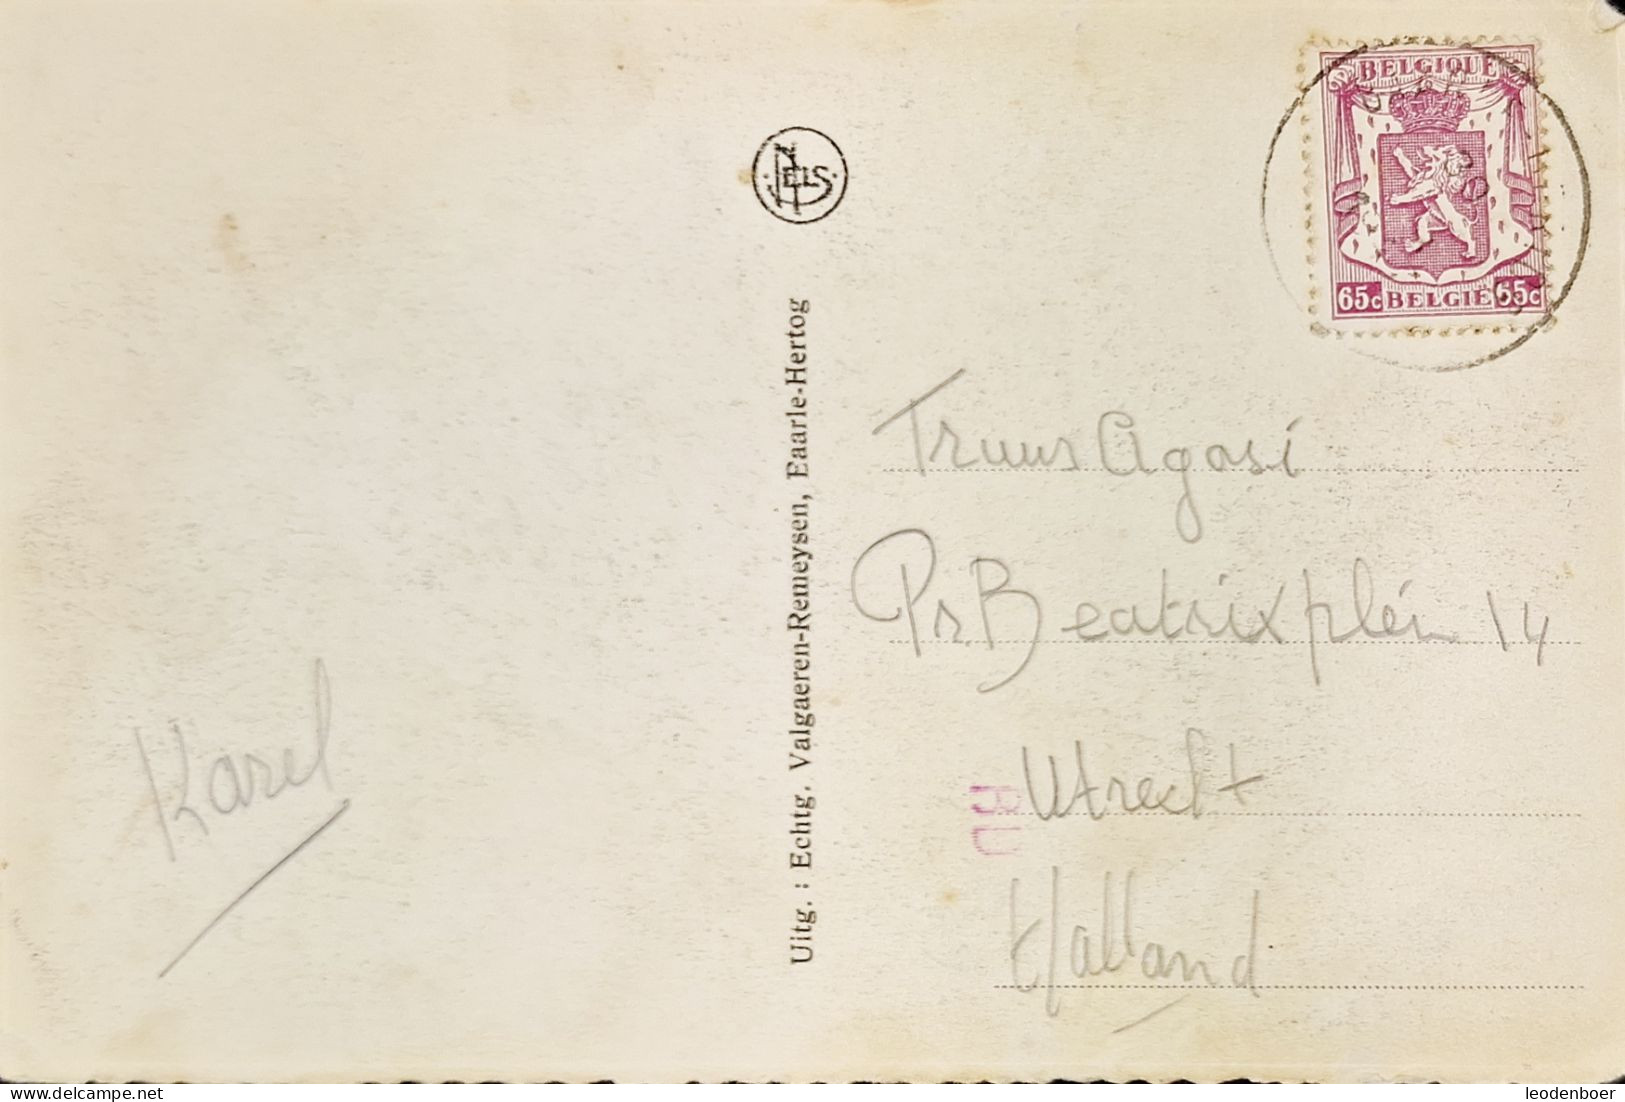 Karel
NELS
Uitg. : Echtg. Valgaeren-Remeysen, Eaarle-Hertog
BELGIQUE
65c BELGIE 65c
Truus Agasi
Pr. Beatrixplein 14
Utrecht
Holland
leodenboer